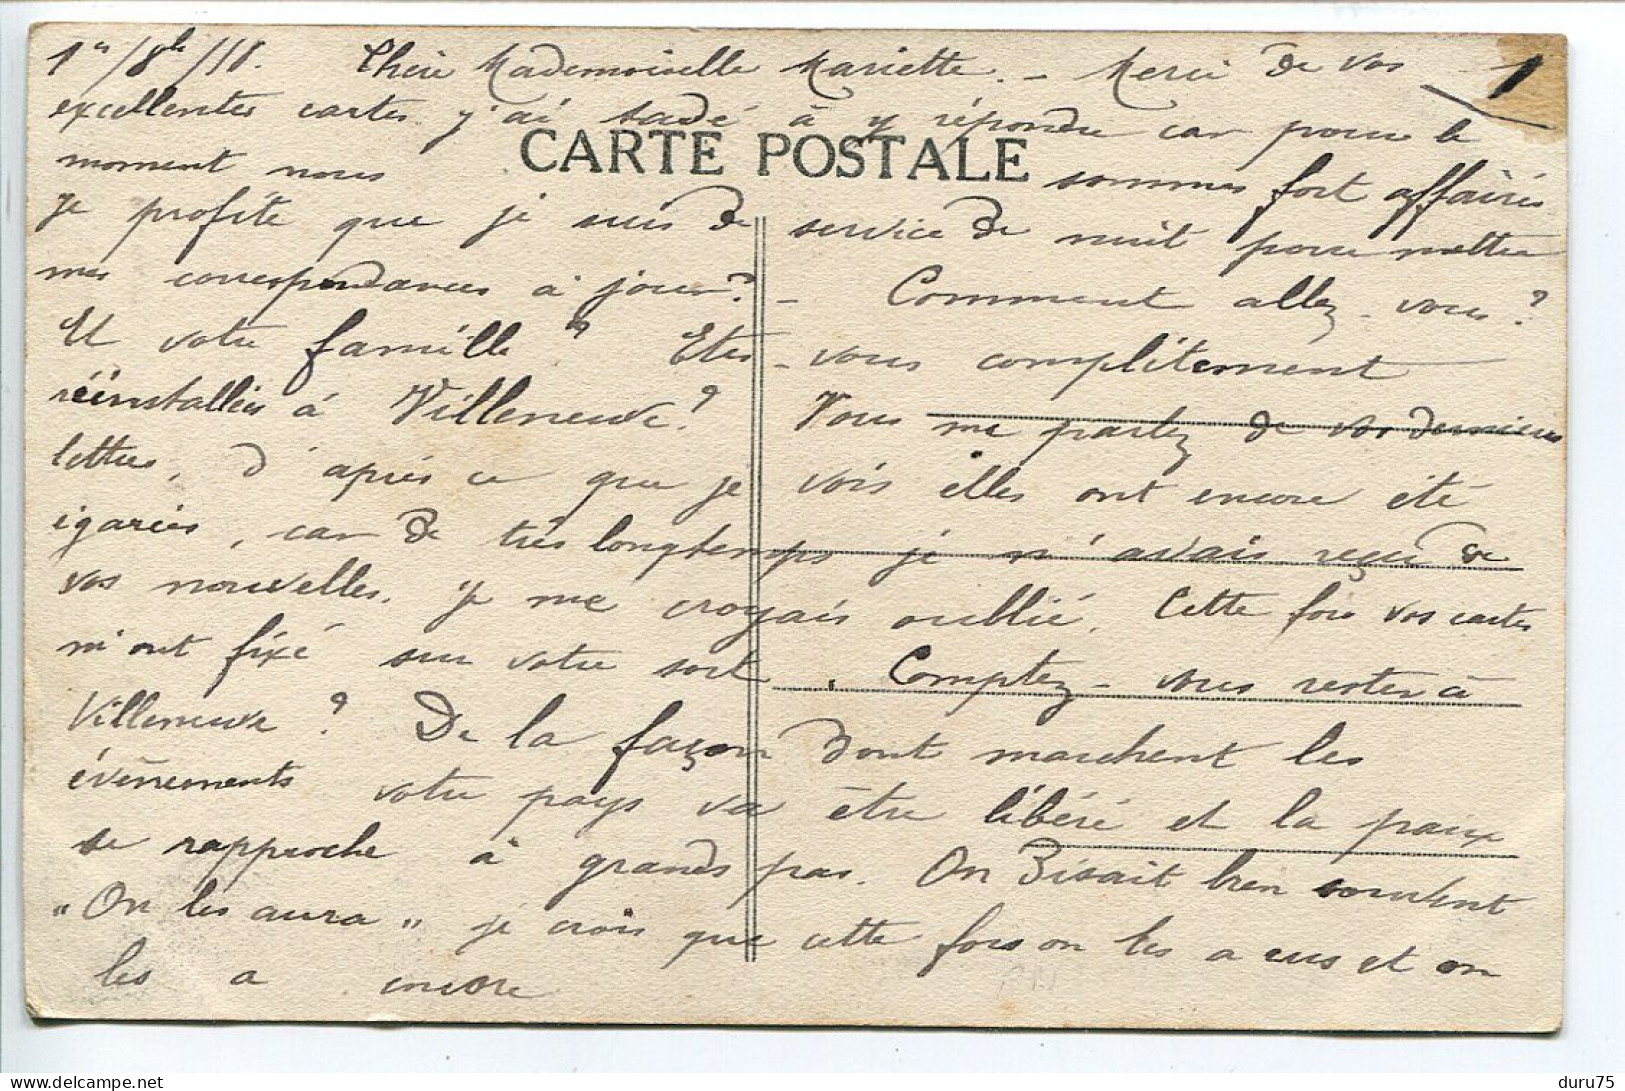 1er/8b/18. Chère Mademoiselle Mariette. - Merci de vos 1
excellentes cartes j'ai tardé à y répondre car pour le
CARTE POSTALE
moment nous sommes fort affairés
je profite que je suis de service de nuit pour mettre
mes correspondances à jour. - Comment allez-vous?
Et votre famille? Etes-vous complètement
réinstallées à Villeneuve? Vous me parlez de vos dernières
lettres, d'après ce que je vois elles ont encore été
égarées, car de très longtemps je n'avais reçu de
vos nouvelles. Je me croyais oublié. Cette fois vos cartes
m'ont fixé sur votre sort. Comptez-vous rester à
Villeneuve? De la façon dont marchent les
évènements votre pays va être libéré et la paix
se rapproche à grands pas. On disait bien souvent
"On les aura" je crois que cette fois on les a eus et on
les a encore
duru75